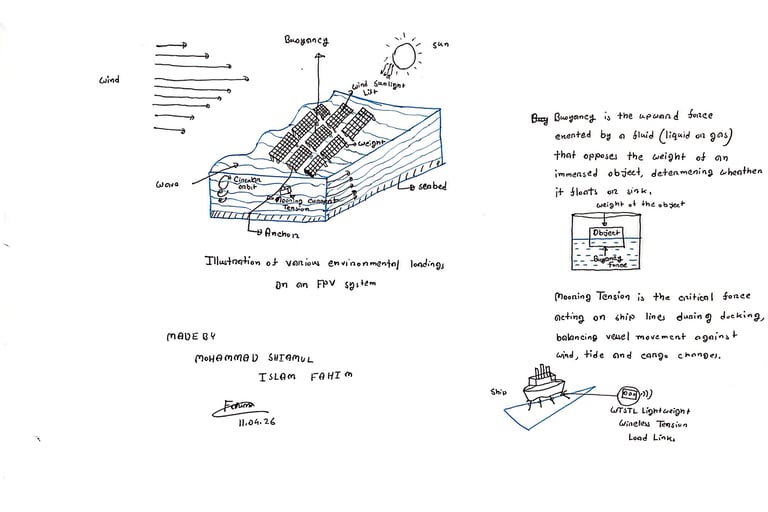 Wind
Buoyancy
sun
Wind sunlight
Lift
weight
Wave
Circular
orbit
Mooring current
Tension
seabed
Anchor
Illustration of various environmental loadings
on an FPV system
MADE BY
MOHAMMAD SHIAMUL
ISLAM FAHIM
Fahim
11.04.26
Buoyancy is the upward force
exerted by a fluid (liquid or gas)
that opposes the weight of an
immersed object, determening wheather
it floats or sink.
weight of the object
Object
force
Mooring Tension is the critical force
acting on ship lines during docking,
balancing vessel movement against
wind, tide and cargo changes.
Ship
WTSTL Lightweight
Wireless Tension
Load Links